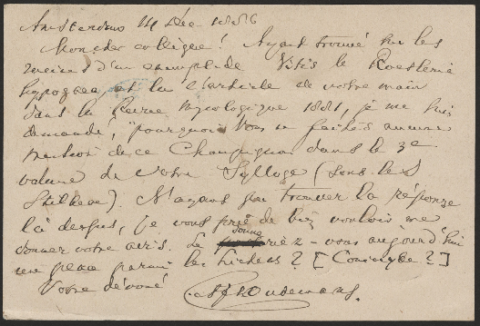 Amsterdam 14 Déc. 1886
Mon cher collègue! Ayant trouvé sur les
racines d'un exemplaire de Vitis le Roesleria
hypogaea et lu l'article de votre main
dans la Revue Mycologique 1881, je me suis
demandé, "pourquoi vous ne faites aucune
mention de ce Champignon dans le 3e
volume de votre Sylloge (sous le
Stilbum). N'ayant pu trouver la réponse
là dessus, je vous prie de bien vouloir me
donner votre avis. Le donneriez-vous aujourd'hui
une place parmi les? [Coniocybe?]
Votre dévoué
CAJAOudemans.